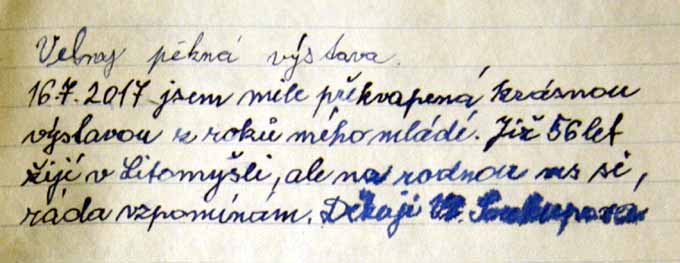 Velmi pěkná výstava.
16.7.2017 jsem mile překvapená krásnou
výstavou z roků mého mládé. Již 56 let
žiji v Litomyšli, ale na rodnou ves si,
ráda vzpomínám. Děkuji